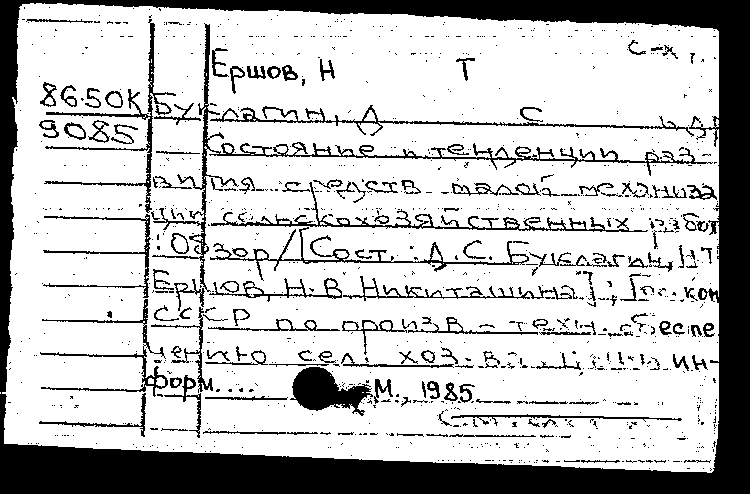 С-х.
Ершов, Н Т
86.50К Буклагин, Д С и др
9085
Состояние и тенденции раз-
вития средств малой механиза
ции сельскохозяйственных работ
: Обзор / [Сост. : Д.С. Буклагин, Н.Т.
Ершов, Н.В. Никиташина] ; Гос. ком
СССР по произв.-техн. обеспе
чению сел. хоз-ва. ин-
форм.... М., 1985.